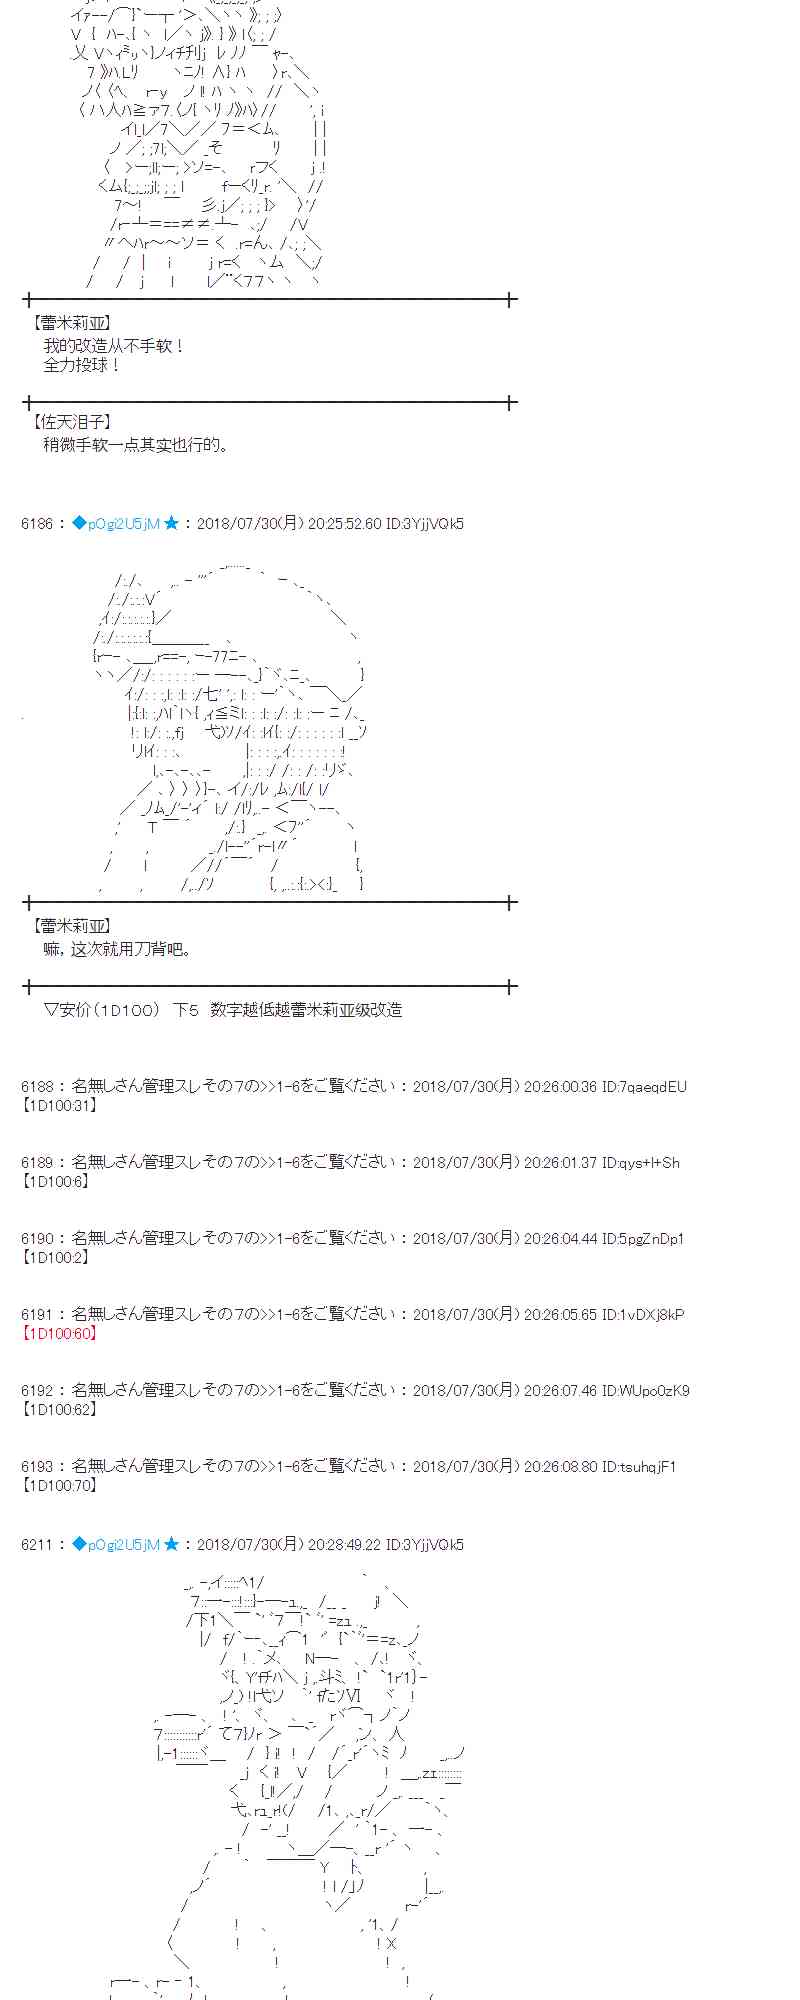 【蕾米莉亚】
我的改造从不手软！
全力投球！
【佐天泪子】
稍微手软一点其实也行的。
6186 ： ◆pOgi2U5jM ★ ： 2018/07/30(月) 20:25:52.60 ID:3YjjVQk5
【蕾米莉亚】
嘛，这次就用刀背吧。
▽安价（1D100） 下5 数字越低越蕾米莉亚级改造
6188 ： 名無しさん管理スレその７の>>1-6をご覧ください ： 2018/07/30(月) 20:26:00.36 ID:7qaeqdEU
【1D100:31】
6189 ： 名無しさん管理スレその７の>>1-6をご覧ください ： 2018/07/30(月) 20:26:01.37 ID:qys+l+Sh
【1D100:6】
6190 ： 名無しさん管理スレその７の>>1-6をご覧ください ： 2018/07/30(月) 20:26:04.44 ID:5pgZnDp1
【1D100:2】
6191 ： 名無しさん管理スレその７の>>1-6をご覧ください ： 2018/07/30(月) 20:26:05.65 ID:1vDXj8kP
【1D100:60】
6192 ： 名無しさん管理スレその７の>>1-6をご覧ください ： 2018/07/30(月) 20:26:07.46 ID:WUpo0zK9
【1D100:62】
6193 ： 名無しさん管理スレその７の>>1-6をご覧ください ： 2018/07/30(月) 20:26:08.80 ID:tsuhqjF1
【1D100:70】
6211 ： ◆pOgi2U5jM ★ ： 2018/07/30(月) 20:28:49.22 ID:3YjjVQk5